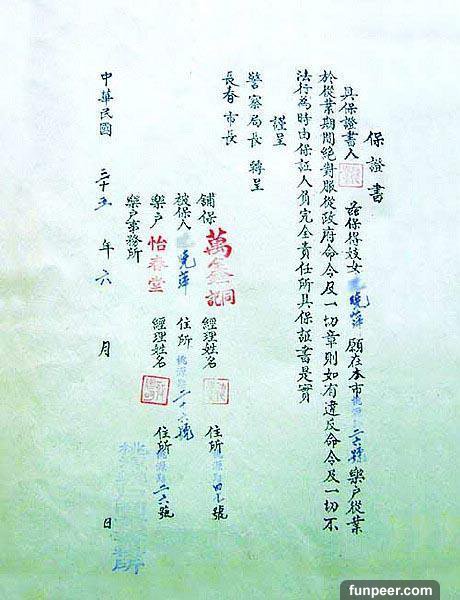 保證書
具保證書人 茲保得妓女 曉萍 願在本市桃源路二六號樂戶從業
於從業期間絕對服從政府命令及一切章則如有違反命令及一切不
法行為時由保証人負完全責任所具保証書是實
謹呈
警察局長 轉呈
長春市長
鋪保 萬鑫同記 經理姓名 住所 桃源路四七號
被保人 曉萍 住所 桃源路二十六號
樂戶 怡春堂 經理姓名 住所 桃源路二六號
樂戶事務所
中華民國 三十五 年 六 月 日
funpeer.com